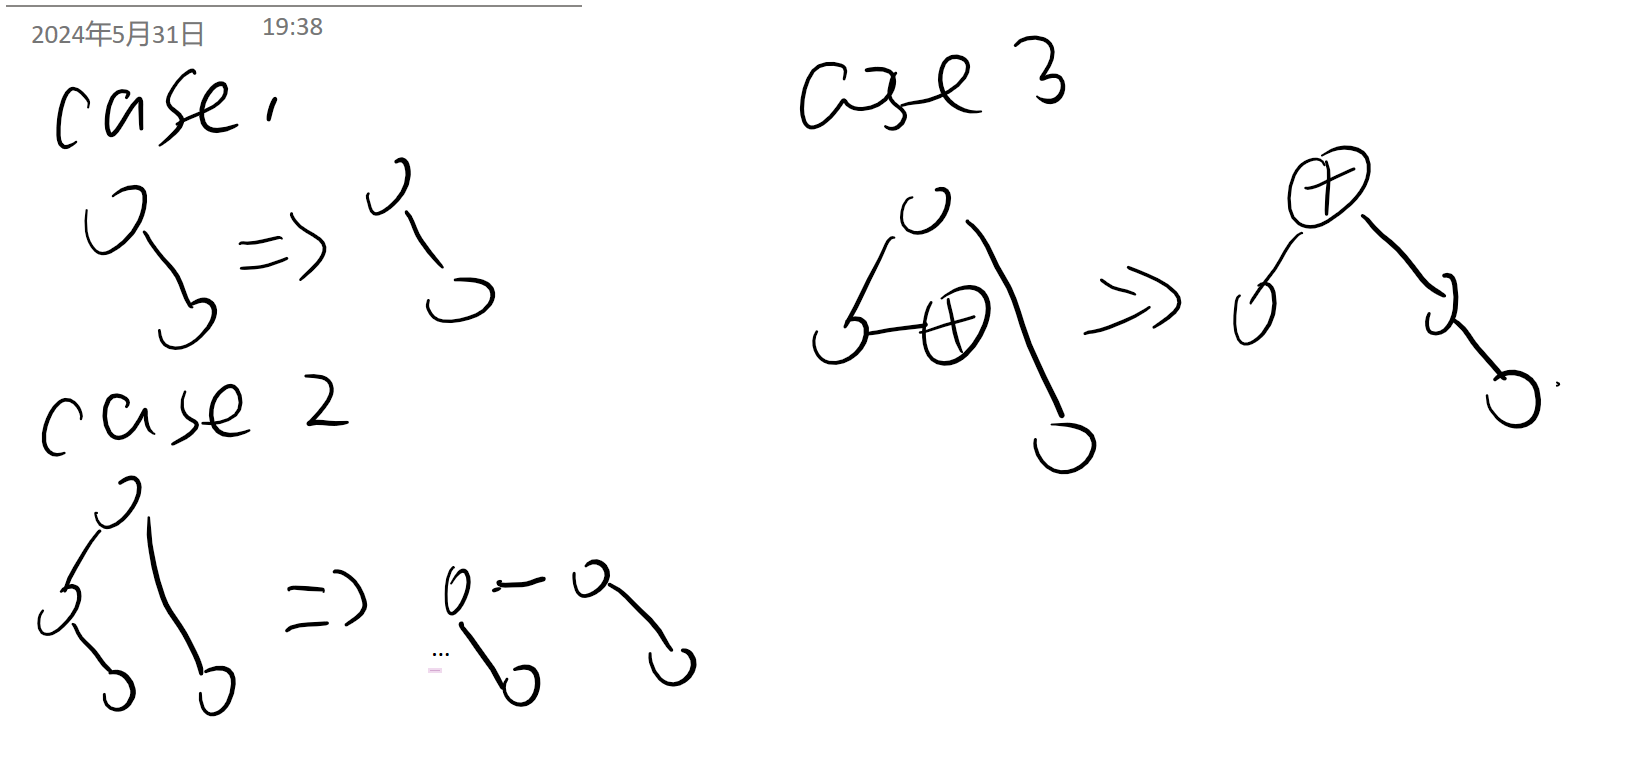 2024年5月31日 19:38
case 1
case 2
...
case 3